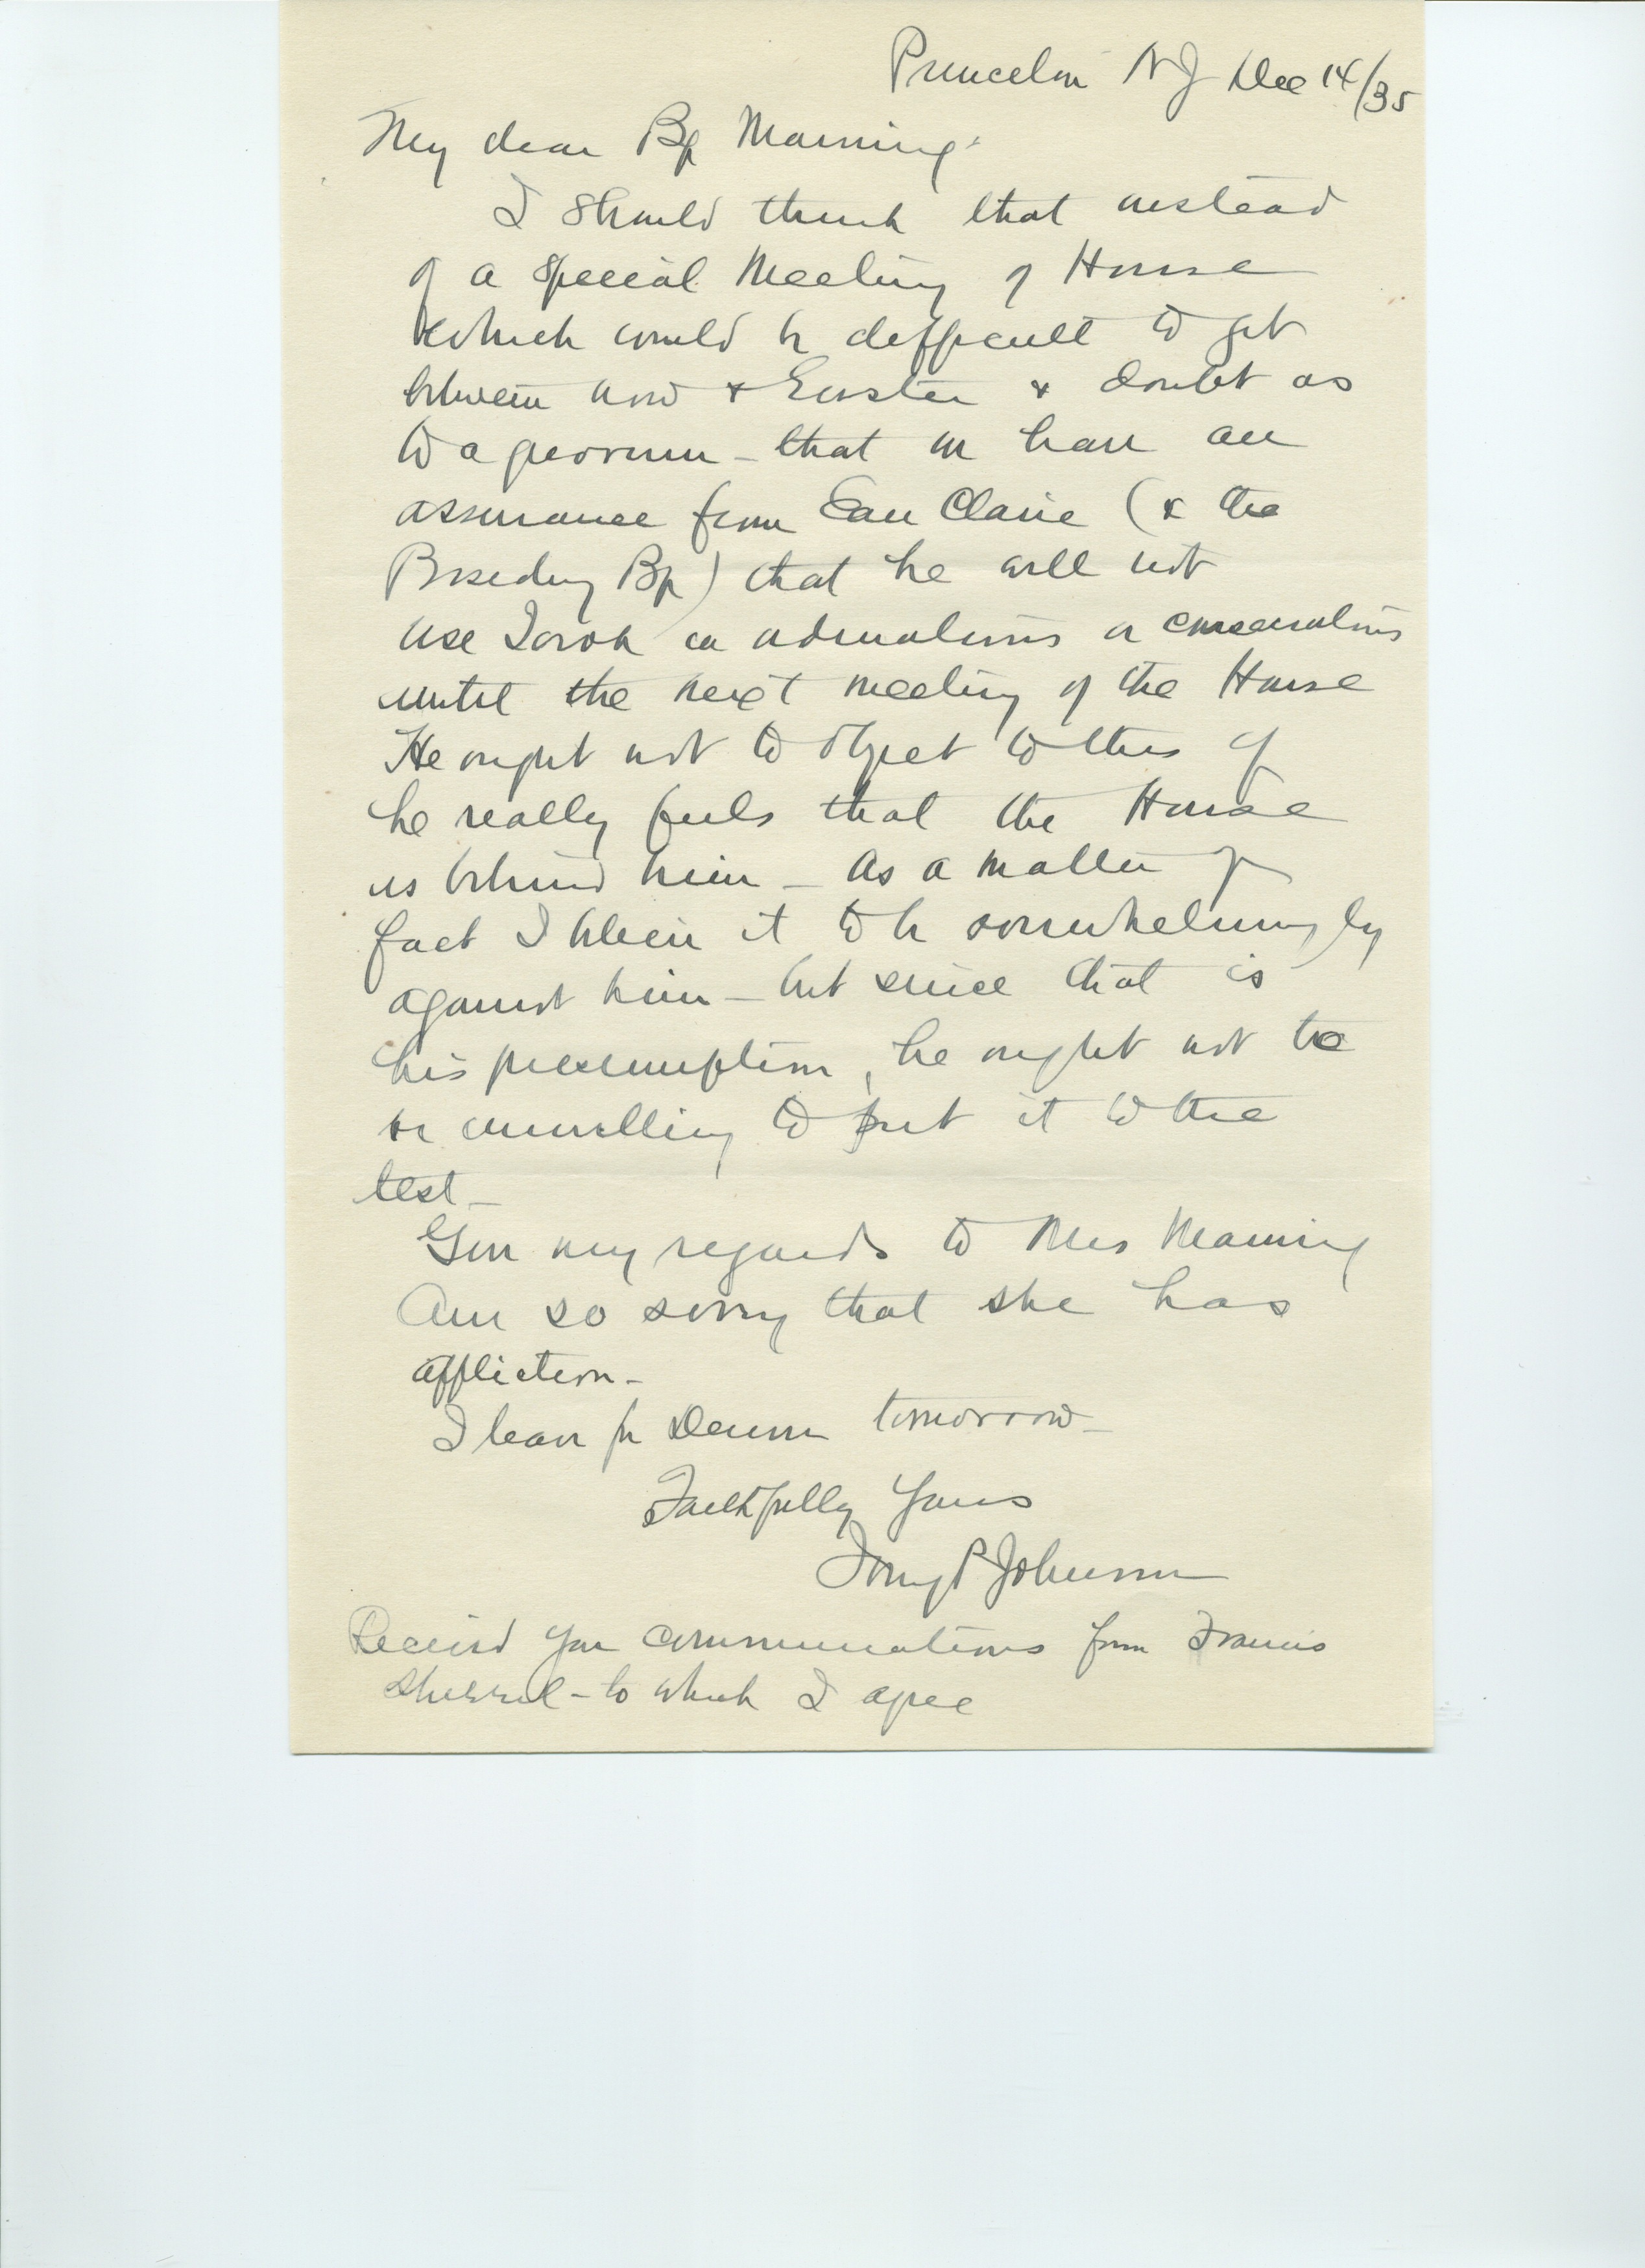 Princeton N J Dec 14/35
My dear Bp Manning:
I should think that instead
of a special Meeting of House
which would be difficult to get
between now & Easter & doubt as
to a quorum - that we have an
assurance from Eau Claire (& the
Presiding Bp) that he will not
use Torok in ordinations or consecrations
until the next meeting of the House
He ought not to object to this if
he really feels that the House
is behind him - As a matter of
fact I believe it to be overwhelmingly
against him - but since that is
his presumption, he ought not to
be unwilling to put it to the
test -
Give my regards to Mrs Manning
Am so sorry that she has
affliction -
I leave for Denver tomorrow -
Faithfully Yours
Irving P Johnson
Received your communications from Francis
- to which I agree